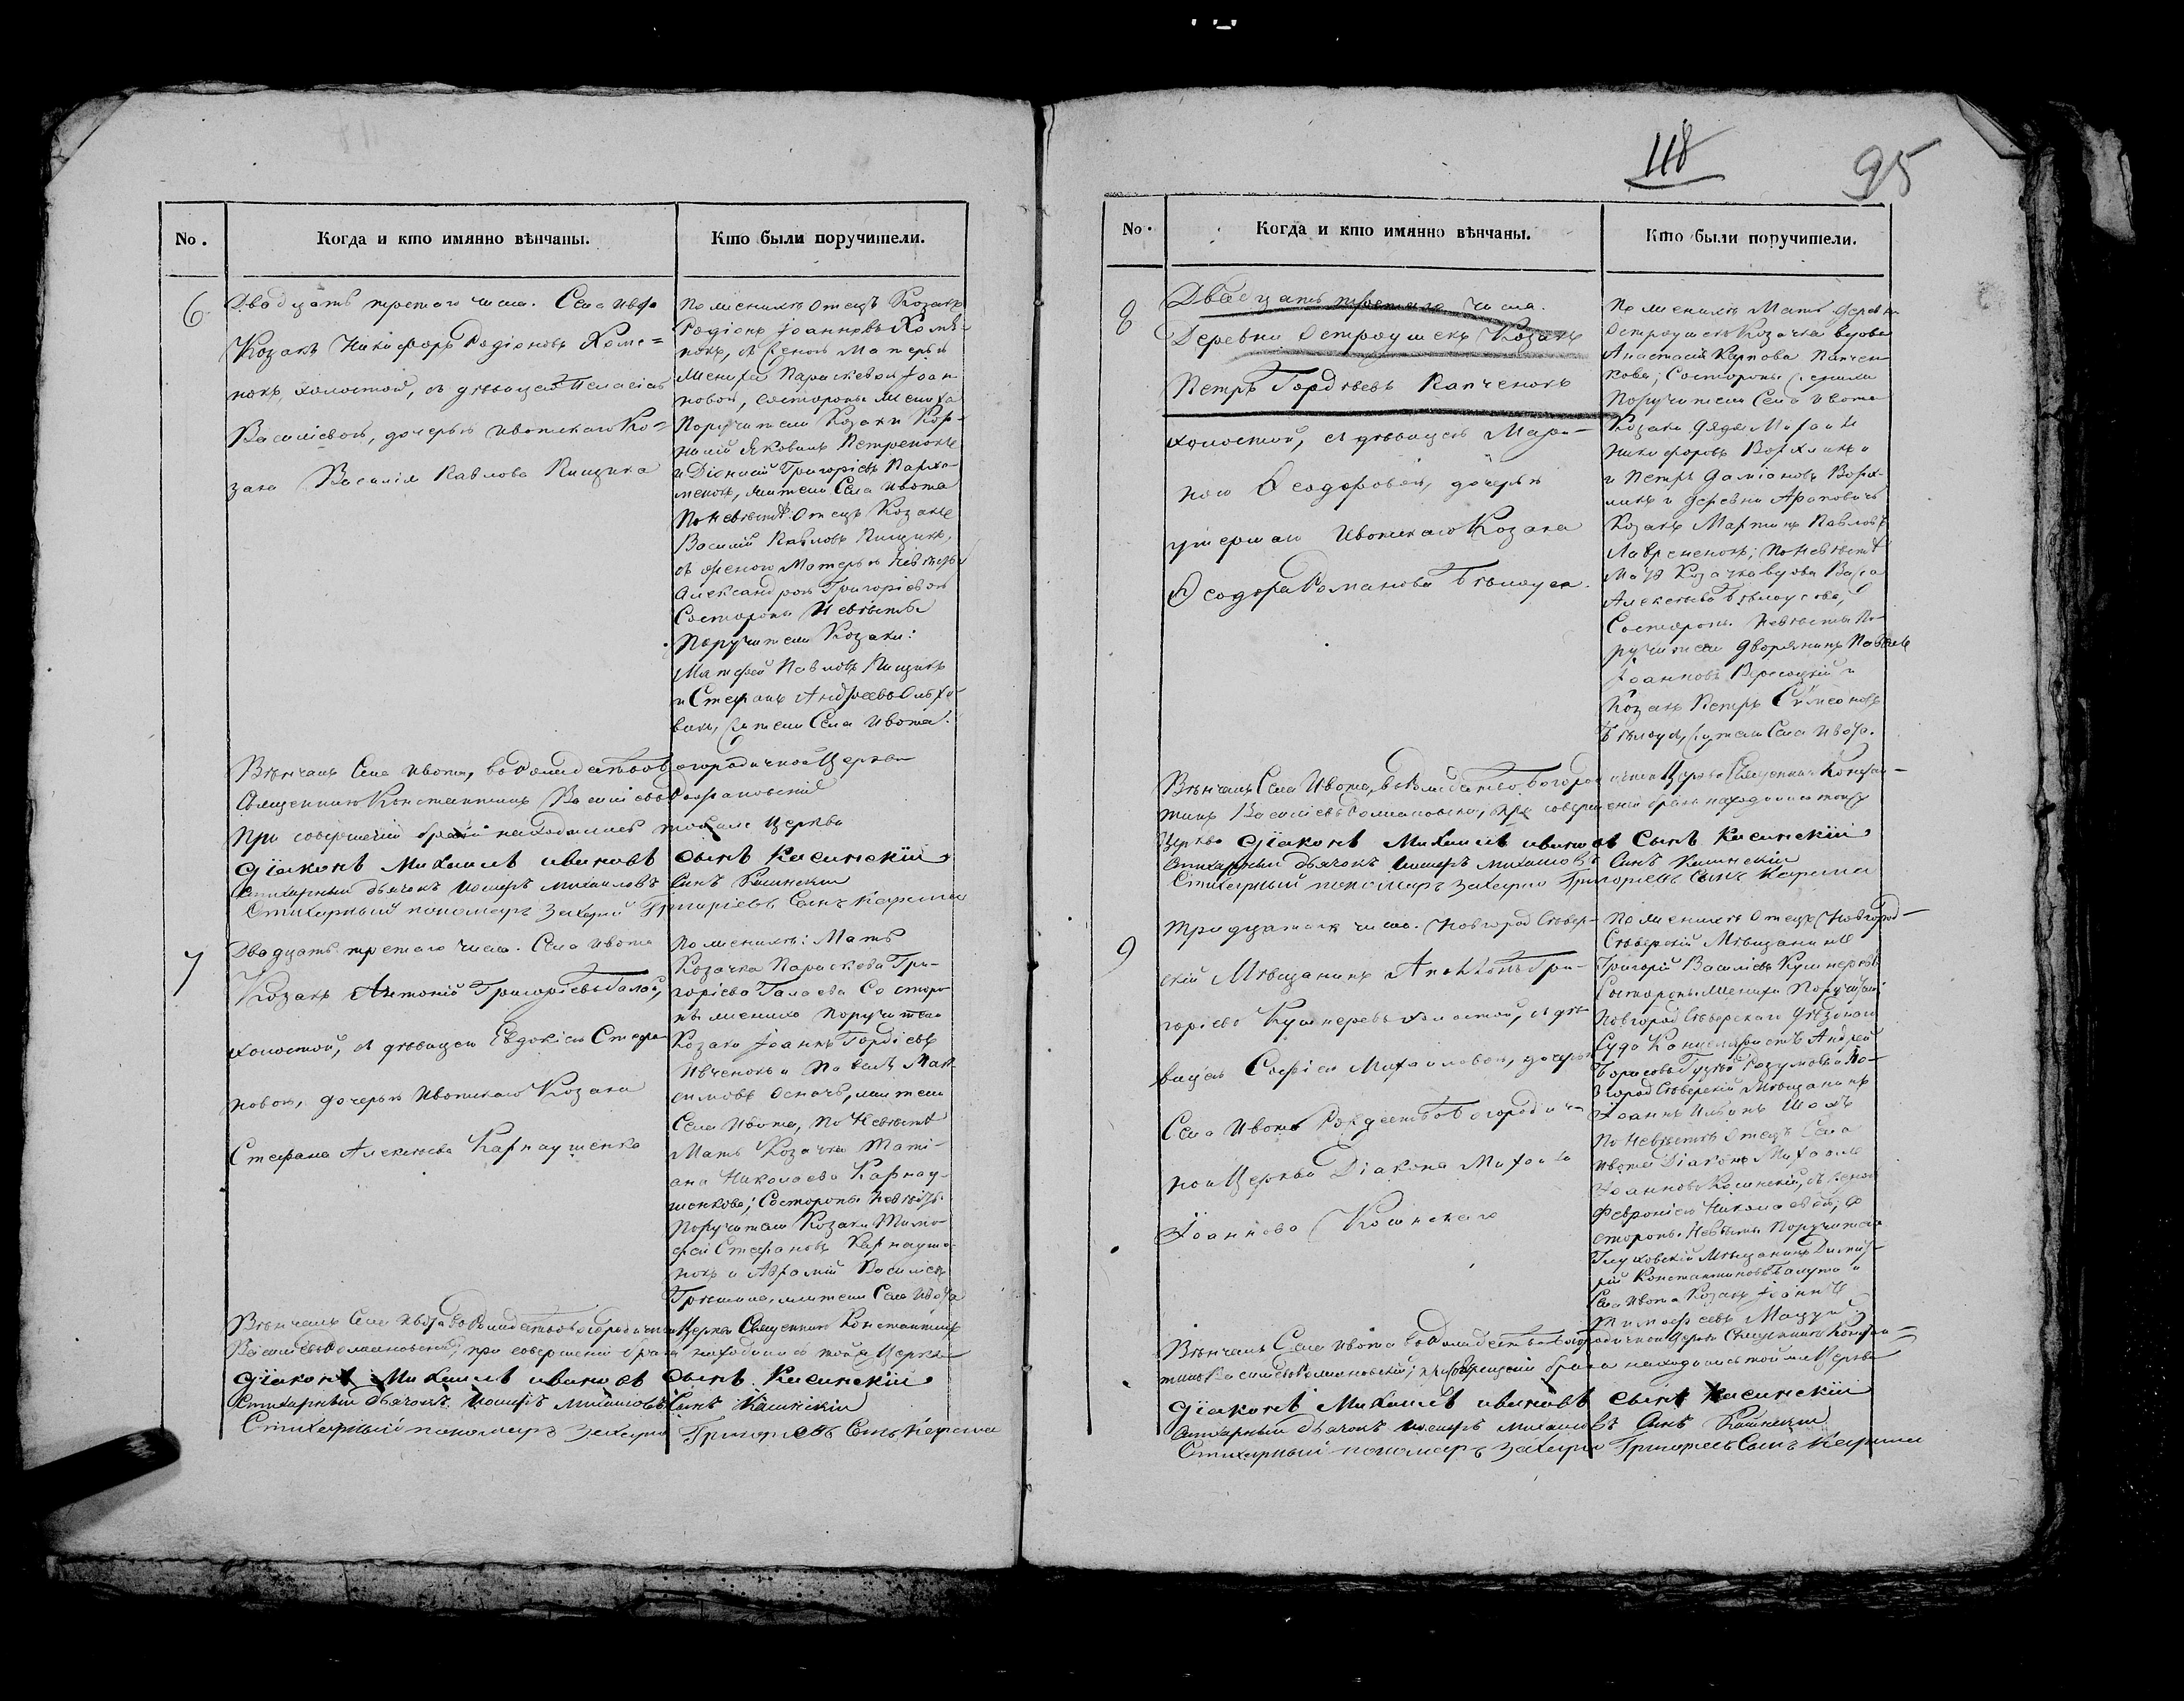 118
95
No.
Когда и кто имянно вѣнчаны.
Кто были поручители.
6
Двадцать третаго числа. Села Ивота
Козакъ Никифоръ Родіоновъ Хоме=
нокъ, холостой, съ дѣвицею Пелагіею
Василіевою, дочерью Ивотскаго Ко=
зака Василія Павлова Пищика
По женихѣ Отецъ Козакъ
Родіонъ Іоанновъ Хомѣ-
нокъ, съ женою Матерью
жениха Параскевою Іоан
новою, состороны жениха
Поручители Козаки Кор-
нилій Яковлевъ Петренокъ
и Діонисій Григорієвъ Пархо-
менокъ, жители Села Ивота
По Невѣстѣ Отецъ Козакъ
Василій Павловъ Пищикъ,
съ женою Матерью Невѣсты
Александрою Григорієвою
Состороны Невѣсты
Поручители Козаки:
Матфей Павловъ Пищикъ
и Стефанъ Андреевъ
жители Села Ивота.
Вѣнчалъ Села Ивота, Рождество Богородичной Церкви
Священникъ Константинъ Василіевъ Романовскій
При совершеніи брака находились тойже Церкви
Діаконъ Михаилъ Ивановъ сынъ Касинскій
Стихарный дьячокъ Іосифъ Михаиловъ Сынъ Касинскій
Стихарный пономаръ Захарій Григорієвъ Сынъ Карпеко
7
Двадцать третаго числа. Села Ивота
Козакъ Антоній Григорієвъ Галай,
холостой, съ дѣвицею Евдокіею Стефа
новою, дочерью Ивотскаго Козака
Стефана Алексѣева Карнаушенка
По женихѣ: Мать
Козачка Параскева Гри-
горієва Галаева Со сторо
ны жениха Поручители
Козаки Іоаннъ Гордієвъ
Ивченокъ и Павелъ Мак-
симовъ Осначъ, жители
Села Ивота, По Невѣстѣ
Мать Козачка Таті-
ана Николаева Карнау-
шенкова; Состороны Невѣсты
Поручители Козаки Тимо-
фей Стефановъ Карнауше-
нокъ и Авраамій Василієвъ
жители Села Ивота
Вѣнчалъ Села Ивота Рождество Богородичной Церкви Священникъ Константинъ
Василіевъ Романовскій; при совершеніи брака находились тойже Церкви
Діаконъ Михаилъ Ивановъ сынъ Касинскій
Стихарный дьячокъ Іосифъ Михаиловъ Сынъ Касинскій
Стихарный пономаръ Захарій Григорієвъ Сынъ Карпеко
No.
Когда и кто имянно вѣнчаны.
Кто были поручители.
8
Двадцать третаго числа.
Деревни Остроушекъ Козакъ
Петръ Гордѣевъ Папченокъ
холостой, съ дѣвицею Мари-
ною Ѳеодоровою, дочерью
умершаго Ивотскаго Козака
Ѳеодора Романова Бѣлоуса.
По женихѣ Мать деревни
Остроушекъ Козачка вдова
Анастасія Карпова Папчен-
кова; Состороны жениха
Поручители Села Ивота
Козаки дядя Михаилъ
Никифоровъ
и Петръ Даміановъ
и деревни
Козакъ Мартинъ Павловъ
Лавренокъ; По Невѣстѣ
Мать Козачка вдова Васа
Алексѣева Бѣлоусова,
Состороны Невѣсты По-
ручители дворянинъ Павелъ
Іоанновъ и
Козакъ Петръ Сѵмеоновъ
Бѣлоусъ, жители Села Ивота.
Вѣнчалъ Села Ивота, Рождество Богородичной Церкви Священникъ Констан-
тинъ Василіевъ Романовскій, при совершеніи брака находились тойже
Церкви Діаконъ Михаилъ Ивановъ сынъ Касинскій
Стихарный дьячокъ Іосифъ Михаиловъ Сынъ Касинскій
Стихарный пономаръ Захарій Григорієвъ Сынъ Карпеко
9
Тридцатаго числа. Новгород Сѣвер-
скій Мѣщанинъ Гри-
горієвъ Кушнеревъ холостой, съ дѣ-
вицею Софіею Михаиловою, дочерью
Села Ивота Рождество Богородич-
ной Церкви Діакона Михаила
Іоаннова Касинскаго
По женихѣ Отецъ Новгород-
Сѣверскій Мѣщанинъ
Григорій Василієвъ Кушнеревъ
Состороны жениха Поручители
Новгород Сѣверскаго Уѣзднаго
Суда Канцеляристъ Андрей
Борисовъ и Но-
вгород Сѣверскій Мѣщанинъ
Іоаннъ
По Невѣстѣ Отецъ Села
Ивота Діаконъ Михаилъ
Іоанновъ Касинскій, съ женою
Февроніею Николаевою; Со
стороны Невѣсты Поручители
Глуховскій Мѣщанинъ Димит-
рій Константиновъ и
Села Ивота Козакъ Іоаннъ
Тимофеевъ
Вѣнчалъ Села Ивота Рождество Богородичной Церкви Священникъ Констан=
тинъ Василіевъ Романовскій; при совершеніи брака находились тойже Церкви
Діаконъ Михаилъ Ивановъ сынъ Касинскій
Стихарный дьячокъ Іосифъ Михаиловъ Сынъ Касинскій
Стихарный пономаръ Захарій Григорієвъ Сынъ Карпеко